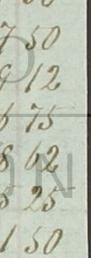 50
7 50
9 12
6 75
8 62
5 25
1 50